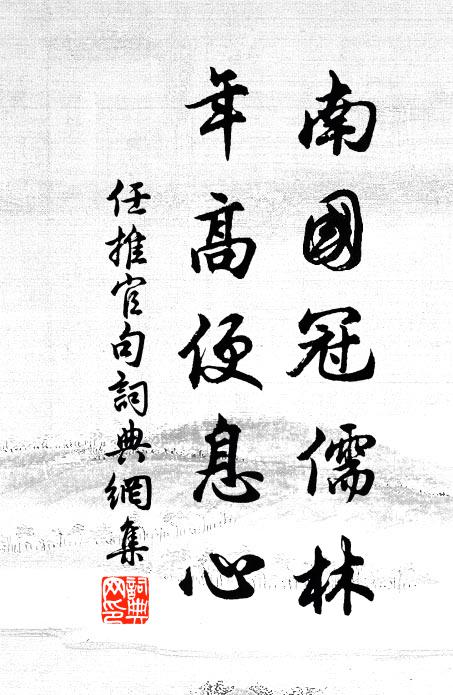 南國冠儒林
年高便息心
任推官句詞典網集
詞典
网印